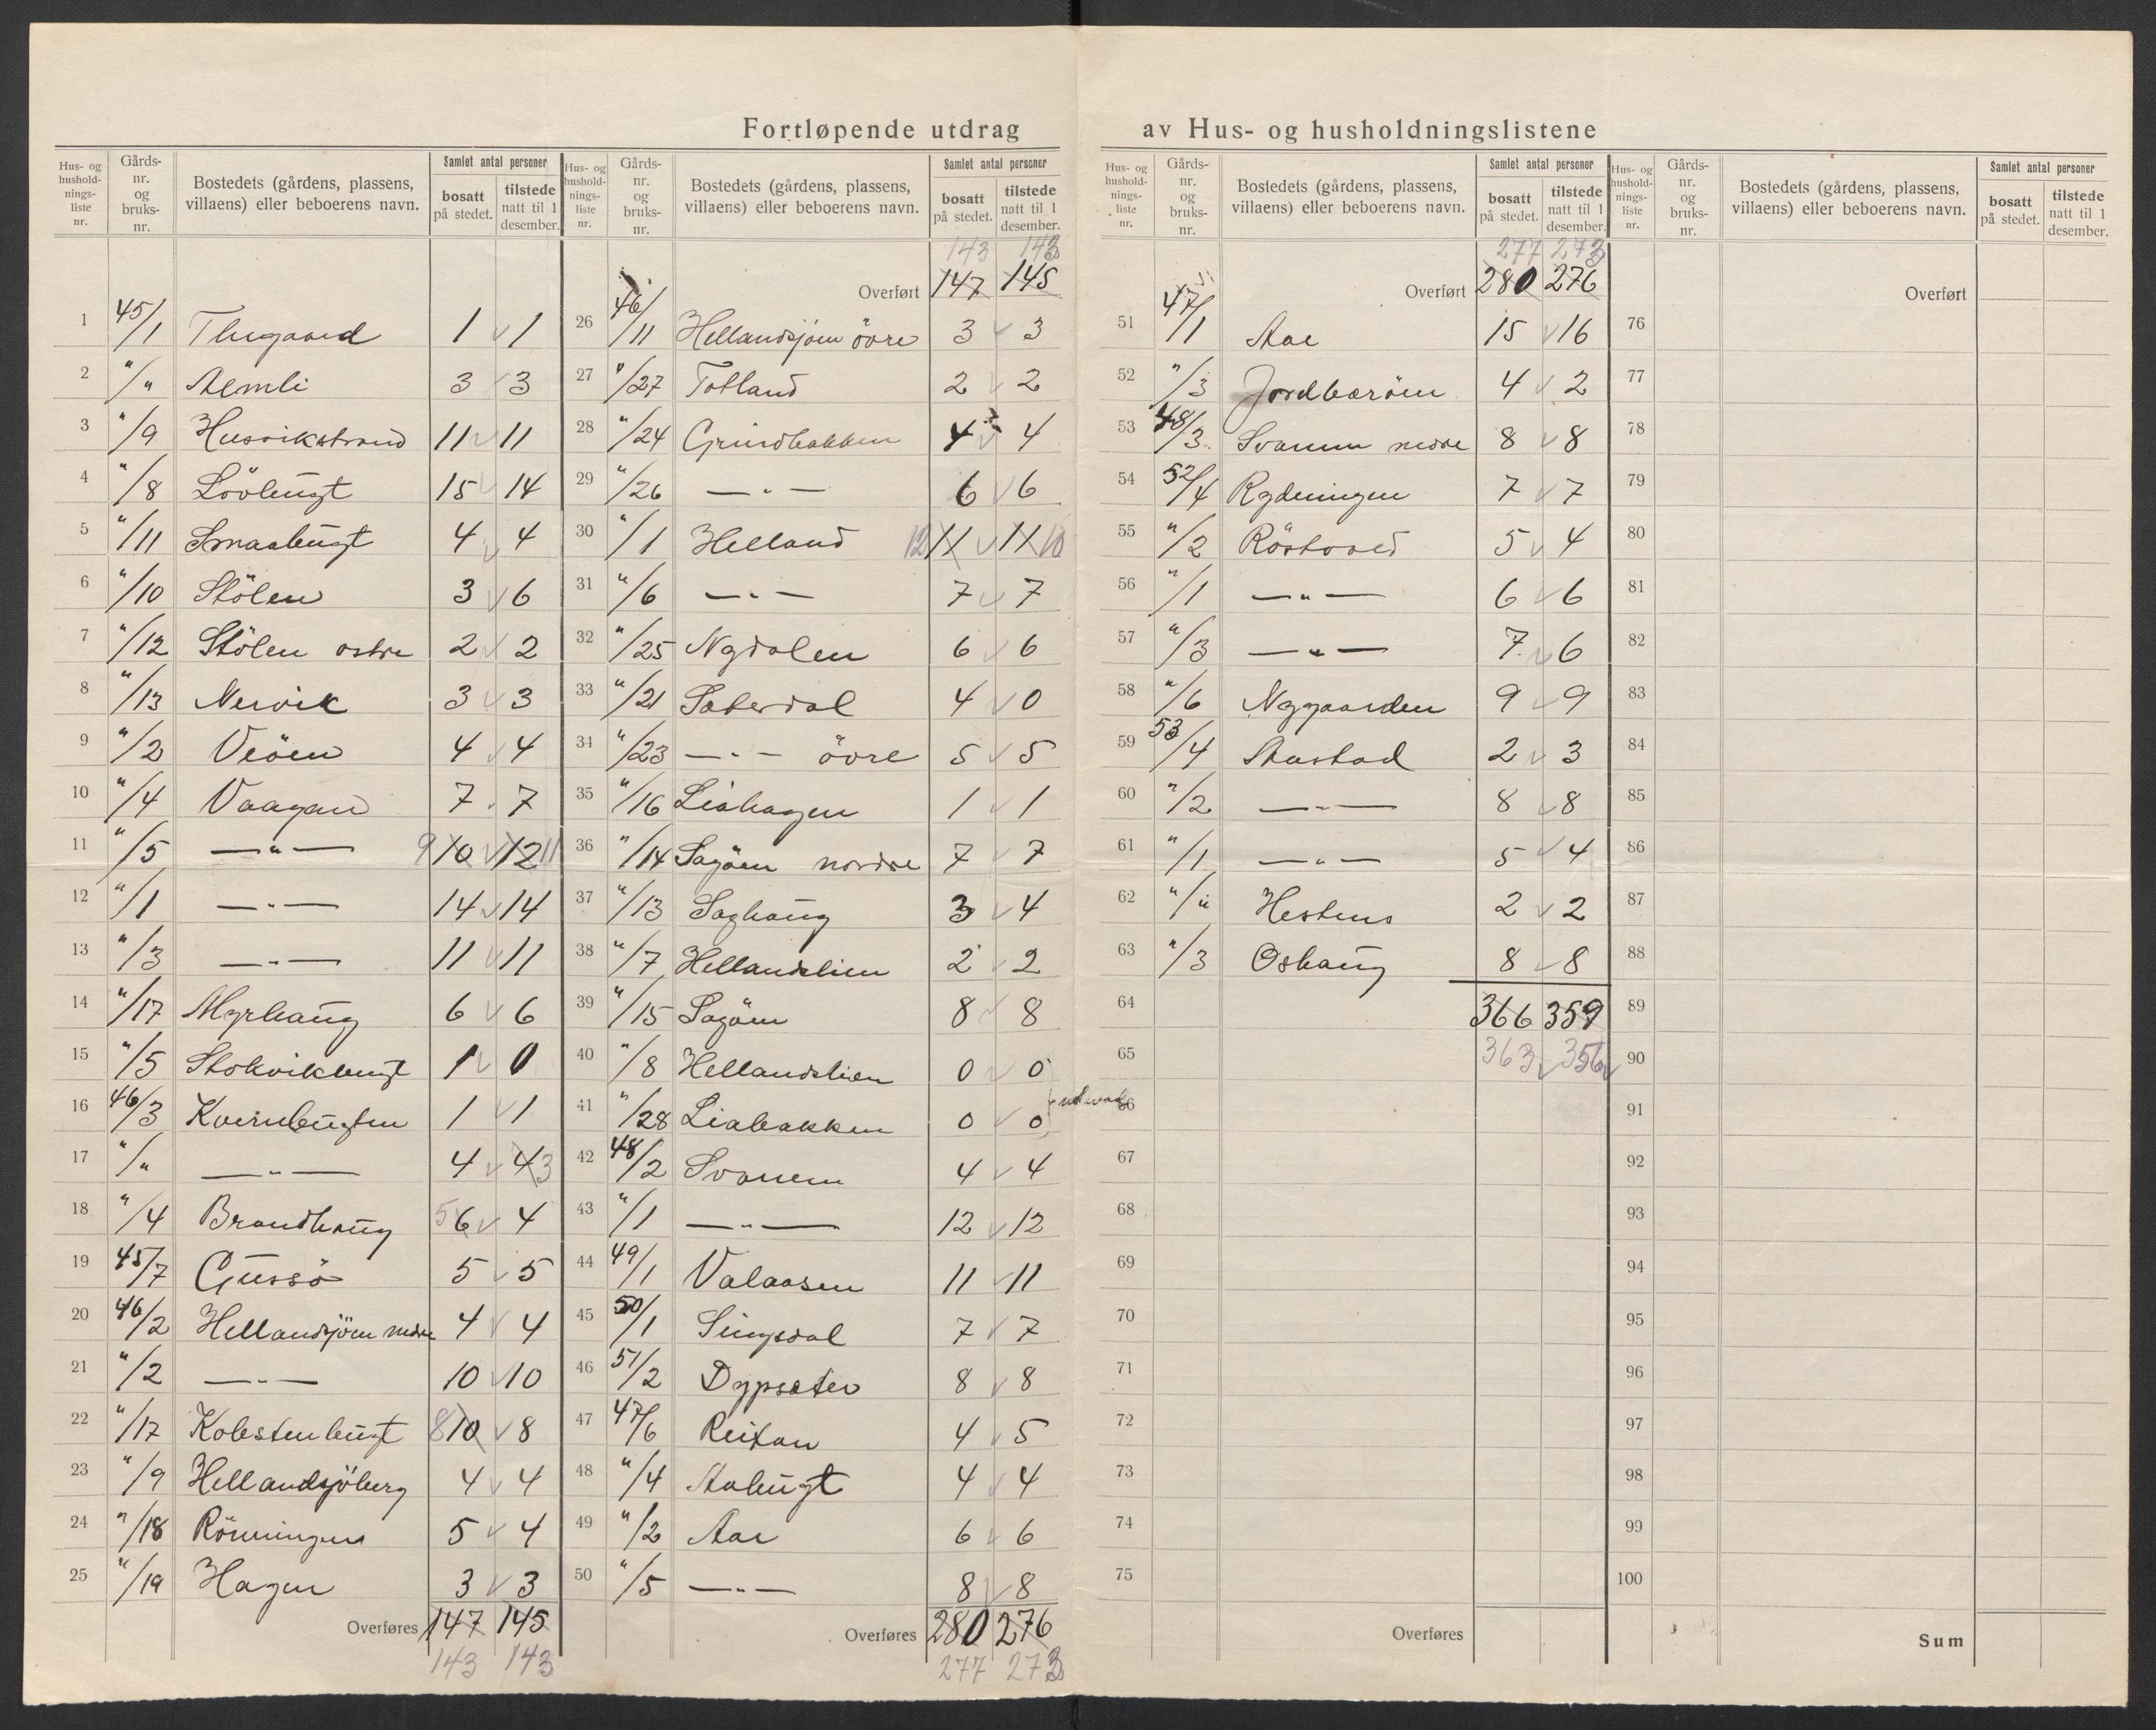 Fortløpende utdrag av Hus- og husholdningslistene
Hus- og hushold- nings- liste nr. | Gårds- nr. og bruks- nr. | Bostedets (gårdens, plassens, villaens) eller beboerens navn. | Samlet antal personer | bosatt på stedet. | tilstede natt til 1 desember.
1 45/1 Thegaard 1 1
2 "/" Almli 3 3
3 "/9 Husvikstrand 11 11
4 "/8 Lövbugt 15 14
5 "/11 Smaabugt 4 4
6 "/10 Stölen 3 6
7 "/12 Stölen östre 2 2
8 "/13 Nervik 3 3
9 "/2 Veöen 4 4
10 "/4 Vaagan 7 7
11 "/5 —"— 9 10 12 11
12 "/1 —"— 14 14
13 "/3 —"— 11 11
14 "/17 Myrhaug 6 6
15 "/5 Stokvikbugt 1 0
16 46/3 Kvernbugten 1 1
17 "/" —"— 4 4 3
18 "/4 Brandhaug 5 6 4
19 45/7 Gussö 5 5
20 46/2 Hellandsjöen nedre 4 4
21 "/2 —"— 10 10
22 "/17 Kolstenbugt 8 10 8
23 "/9 Hellandsjöberg 4 4
24 "/18 Rönningen 5 4
25 "/19 Hagen 3 3
Overføres 147 145
143 143
Hus- og hushold- nings- liste nr. | Gårds- nr. og bruks- nr. | Bostedets (gårdens, plassens, villaens) eller beboerens navn. | Samlet antal personer | bosatt på stedet. | tilstede natt til 1 desember.
143 143
Overført 147 145
26 46/11 Hellandsjöen övre 3 3
27 "/27 Totland 2 2
28 "/24 Grindbakken 4 4
29 "/26 —"— 6 6
30 "/1 Helland 12 11 11 10
31 "/6 —"— 7 7
32 "/25 Nydalen 6 6
33 "/21 Sæterdal 4 0
34 "/23 —"— övre 5 5
35 "/16 Liahagen 1 1
36 "/14 Sagöen nordre 7 7
37 "/13 Saghaug 3 4
38 "/7 Hellandslien 2 2
39 "/15 Sagöen 8 8
40 "/8 Hellandslien 0 0
41 "/28 Liabakken 0 0
42 48/2 Svanem 4 4
43 "/1 —"— 12 12
44 49/1 Valaasen 11 11
45 50/1 Singsdal 7 7
46 51/2 Dypsæter 8 8
47 47/6 Reitan 4 5
48 "/4 Aabugt 4 4
49 "/2 Aae 6 6
50 "/5 —"— 8 8
Overføres 280 276
277 273
Hus- og hushold- nings- liste nr. | Gårds- nr. og bruks- nr. | Bostedets (gårdens, plassens, villaens) eller beboerens navn. | Samlet antal personer | bosatt på stedet. | tilstede natt til 1 desember.
277 273
Overført 280 276
51 47/1 Aae 15 16
52 "/3 Jordbæröen 4 2
53 48/3 Svanem nedre 8 8
54 52/4 Rydningen 7 7
55 "/2 Röstvoed 5 4
56 "/1 —"— 6 6
57 "/3 —"— 7 6
58 "/6 Nygaarden 9 9
59 53/4 Aastad 2 3
60 "/2 —"— 8 8
61 "/1 —"— 5 4
62 "/" Hestnes 2 2
63 "/3 Oshaug 8 8
64 366 359
65 363 356
66
67
68
69
70
71
72
73
74
75
Overføres
Hus- og hushold- nings- liste nr. | Gårds- nr. og bruks- nr. | Bostedets (gårdens, plassens, villaens) eller beboerens navn. | Samlet antal personer | bosatt på stedet. | tilstede natt til 1 desember.
Overført
76
77
78
79
80
81
82
83
84
85
86
87
88
89
90
91
92
93
94
95
96
97
98
99
100
Sum